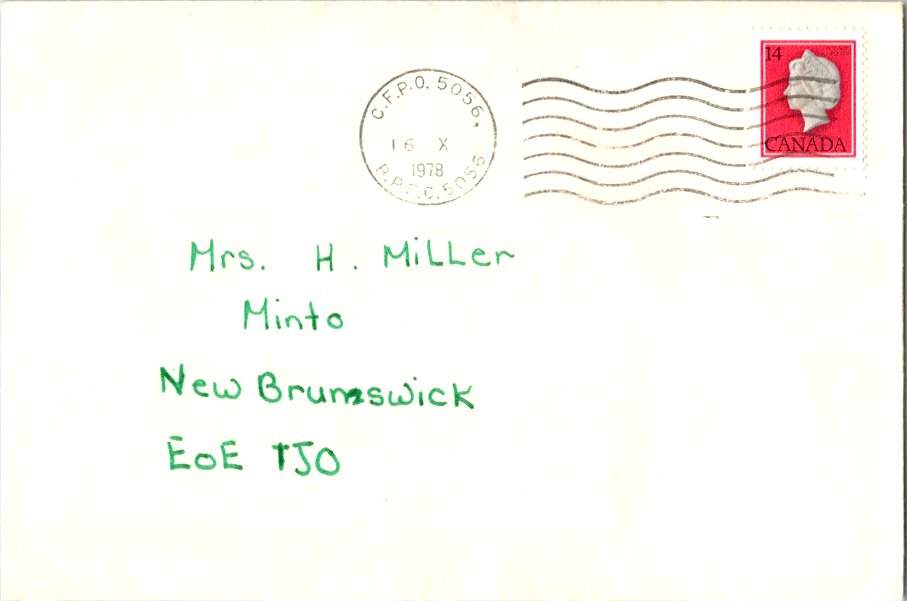 C.F.P.O. 5056,
16 X
1978
B.P.F.C. 5056
14
CANADA
Mrs. H. Miller
Minto
New Brunswick
EoE TJO